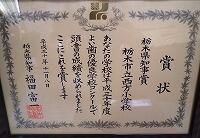 賞状
栃木県知事賞
栃木市立西方小学校
あなたの学校は平成二十七年度
よい歯の優良学校コンクールで
頭書の成績を収められました
ここにこれを賞します
栃木県知事 福田富一